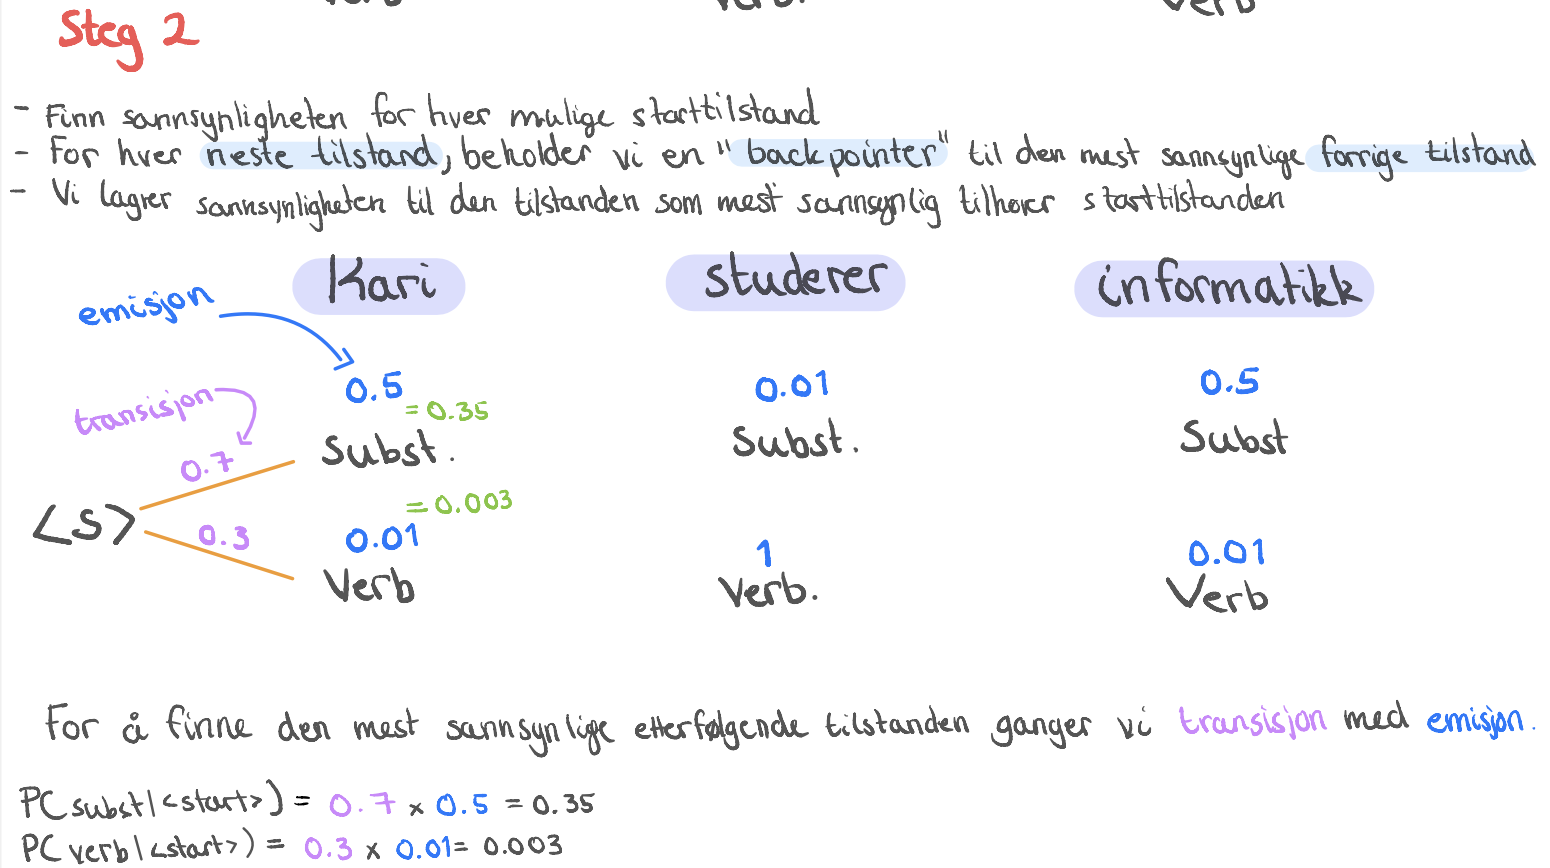 Steg 2
- Finn sannsynligheten for hver mulige starttilstand
- For hver neste tilstand, beholder vi en "backpointer" til den mest sannsynlige forrige tilstand
- Vi lagrer sannsynligheten til den tilstanden som mest sannsynlig tilhører starttilstanden
Kari studerer informatikk
emisjon
0.5 0.01 0.5
= 0.35
transisjon
Subst. Subst. Subst
0.7
= 0.003
<s>
0.3 0.01 1 0.01
Verb Verb. Verb
For å finne den mest sannsynlige etterfølgende tilstanden ganger vi transisjon med emisjon.
P(subst|<start>) = 0.7 x 0.5 = 0.35
P(verb|<start>) = 0.3 x 0.01 = 0.003